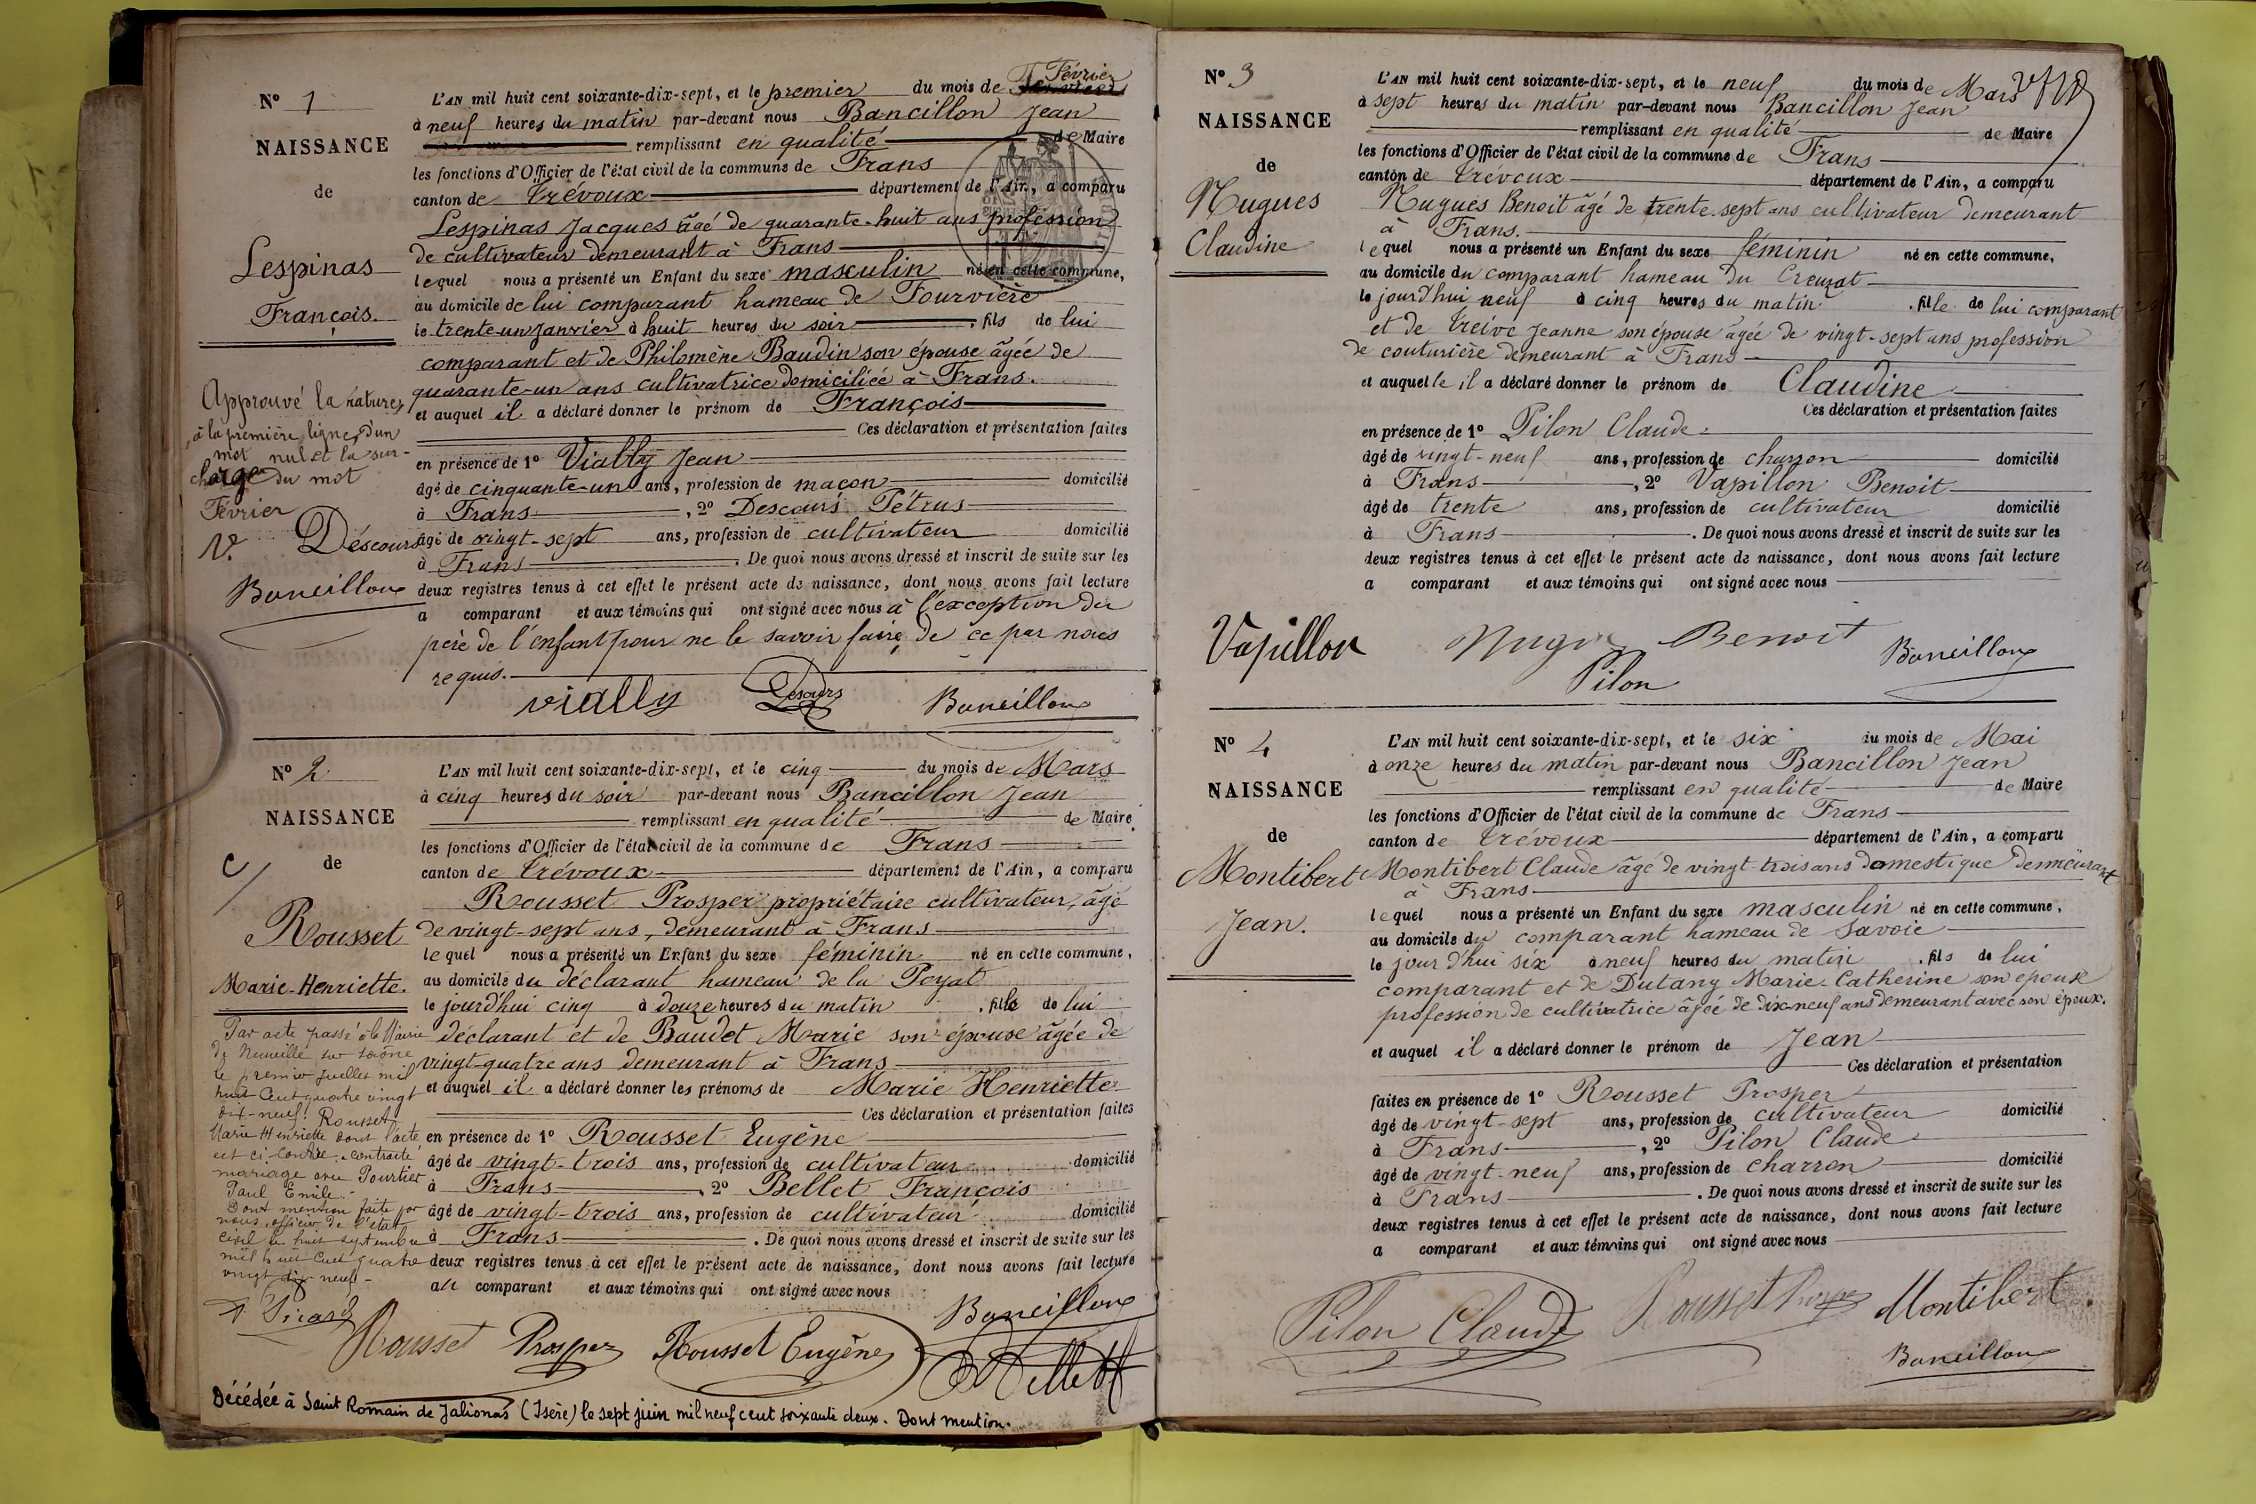 N° 1
NAISSANCE
de
Lespinas
François.
Approuvé la rature,
à la première ligne, d'un
mot nul et la sur-
charge du mot
Février
V. Déscours
Bancillon
L'AN mil huit cent soixante-dix-sept, et le premier du mois de Février
à neuf heures du matin par-devant nous Bancillon Jean
remplissant en qualité de Maire
les fonctions d'Officier de l'état civil de la commune de Frans
canton de Trévoux département de l'Ain, a comparu
Lespinas Jacques âgé de quarante-huit ans profession
de cultivateur demeurant à Frans
lequel nous a présenté un Enfant du sexe masculin né en cette commune,
au domicile de lui comparant hameau de Fourvière
le trente-un janvier à huit heures du soir . fils de lui
comparant et de Philomène Baudin son épouse âgée de
quarante-un ans cultivatrice domiciliée à Frans.
et auquel il a déclaré donner le prénom de François
Ces déclaration et présentation faites
en présence de 1° Vially Jean
âgé de cinquante-un ans, profession de maçon domicilié
à Frans , 2° Descours Pétrus
âgé de vingt-sept ans, profession de cultivateur domicilié
à Frans . De quoi nous avons dressé et inscrit de suite sur les
deux registres tenus à cet effet le présent acte de naissance, dont nous avons fait lecture
a comparant et aux témoins qui ont signé avec nous à l'exception du
père de l'enfant pour ne le savoir faire, de ce par nous
requis.
Vially Descours Bancillon
N° 2
NAISSANCE
de
Rousset
Marie-Henriette.
Par acte passé à la Mairie
de Neuville sur Saône
le premier Juillet mil
huit Cent quatre vingt
dix-neuf. Rousset
Marie Henriette dont l'acte
est ci contre, a contracté
mariage avec Pourtier
Paul Emile.
Dont mention faite par
nous officier de l'état
civil le huit septembre
mil huit Cent quatre
vingt dix neuf-
Picard
L'AN mil huit cent soixante-dix-sept, et le cinq du mois de Mars
à cinq heures du soir par-devant nous Bancillon Jean
remplissant en qualité de Maire
les fonctions d'Officier de l'état civil de la commune de Frans
canton de Trévoux département de l'Ain, a comparu
Rousset Prosper propriétaire cultivateur, âgé
de vingt-sept ans, demeurant à Frans
lequel nous a présenté un Enfant du sexe féminin né en cette commune,
au domicile du déclarant hameau de la Peyat
le jourd'hui cinq à douze heures du matin . fille de lui
déclarant et de Baudet Marie son épouse âgée de
vingt-quatre ans demeurant à Frans
et auquel il a déclaré donner les prénoms de Marie Henriette
Ces déclaration et présentation faites
en présence de 1° Rousset Eugène
âgé de vingt-trois ans, profession de cultivateur domicilié
à Frans , 2° Bellet François
âgé de vingt-trois ans, profession de cultivateur domicilié
à Frans . De quoi nous avons dressé et inscrit de suite sur les
deux registres tenus à cet effet le présent acte de naissance, dont nous avons fait lecture
au comparant et aux témoins qui ont signé avec nous
Bancillon
Rousset Prosper Rousset Eugène Bellet
Décédée à Saint Romain de Jalionas (Isère) le sept juin mil neuf cent soixante deux. Dont mention.
N° 3
NAISSANCE
de
Nugues
Claudine
L'AN mil huit cent soixante-dix-sept, et le neuf du mois de Mars
à sept heures du matin par-devant nous Bancillon Jean
remplissant en qualité de Maire
les fonctions d'Officier de l'état civil de la commune de Frans
canton de Trévoux département de l'Ain, a comparu
Nugues Benoit âgé de trente-sept ans cultivateur demeurant
à Frans.
lequel nous a présenté un Enfant du sexe féminin né en cette commune,
au domicile du comparant hameau du Creuzat
le jourd'hui neuf à cinq heures du matin . fille de lui comparant
et de Treive Jeanne son épouse âgée de vingt-sept ans profession
de couturière demeurant à Frans
et auquelle il a déclaré donner le prénom de Claudine
Ces déclaration et présentation faites
en présence de 1° Pilon Claude
âgé de vingt-neuf ans, profession de charron domicilié
à Frans , 2° Vapillon Benoit
âgé de trente ans, profession de cultivateur domicilié
à Frans . De quoi nous avons dressé et inscrit de suite sur les
deux registres tenus à cet effet le présent acte de naissance, dont nous avons fait lecture
a comparant et aux témoins qui ont signé avec nous
Vapillon Nugue Benoit Bancillon
Pilon
N° 4
NAISSANCE
de
Montibert
Jean.
L'AN mil huit cent soixante-dix-sept, et le six du mois de Mai
à onze heures du matin par-devant nous Bancillon Jean
remplissant en qualité de Maire
les fonctions d'Officier de l'état civil de la commune de Frans
canton de Trévoux département de l'Ain, a comparu
Montibert Claude âgé de vingt-trois ans domestique demeurant
à Frans
lequel nous a présenté un Enfant du sexe masculin né en cette commune,
au domicile du comparant hameau de Savoie
le jourd'hui six à neuf heures du matin . fils de lui
comparant et de Dutang Marie-Catherine son épouse
profession de cultivatrice âgée de dix-neuf ans demeurant avec son époux.
et auquel il a déclaré donner le prénom de Jean
Ces déclaration et présentation
faites en présence de 1° Rousset Prosper
âgé de vingt-sept ans, profession de cultivateur domicilié
à Frans , 2° Pilon Claude
âgé de vingt-neuf ans, profession de charron domicilié
à Frans . De quoi nous avons dressé et inscrit de suite sur les
deux registres tenus à cet effet le présent acte de naissance, dont nous avons fait lecture
a comparant et aux témoins qui ont signé avec nous
Pilon Claude Rousset Prosper Montibert
Bancillon